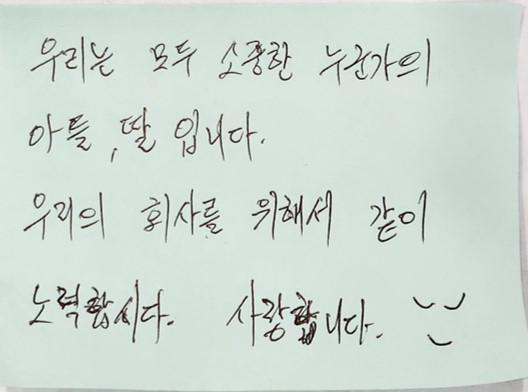 우리는 모두 소중한 누군가의
아들, 딸 입니다.
우리의 회사를 위해서 같이
노력합시다. 사랑합니다.